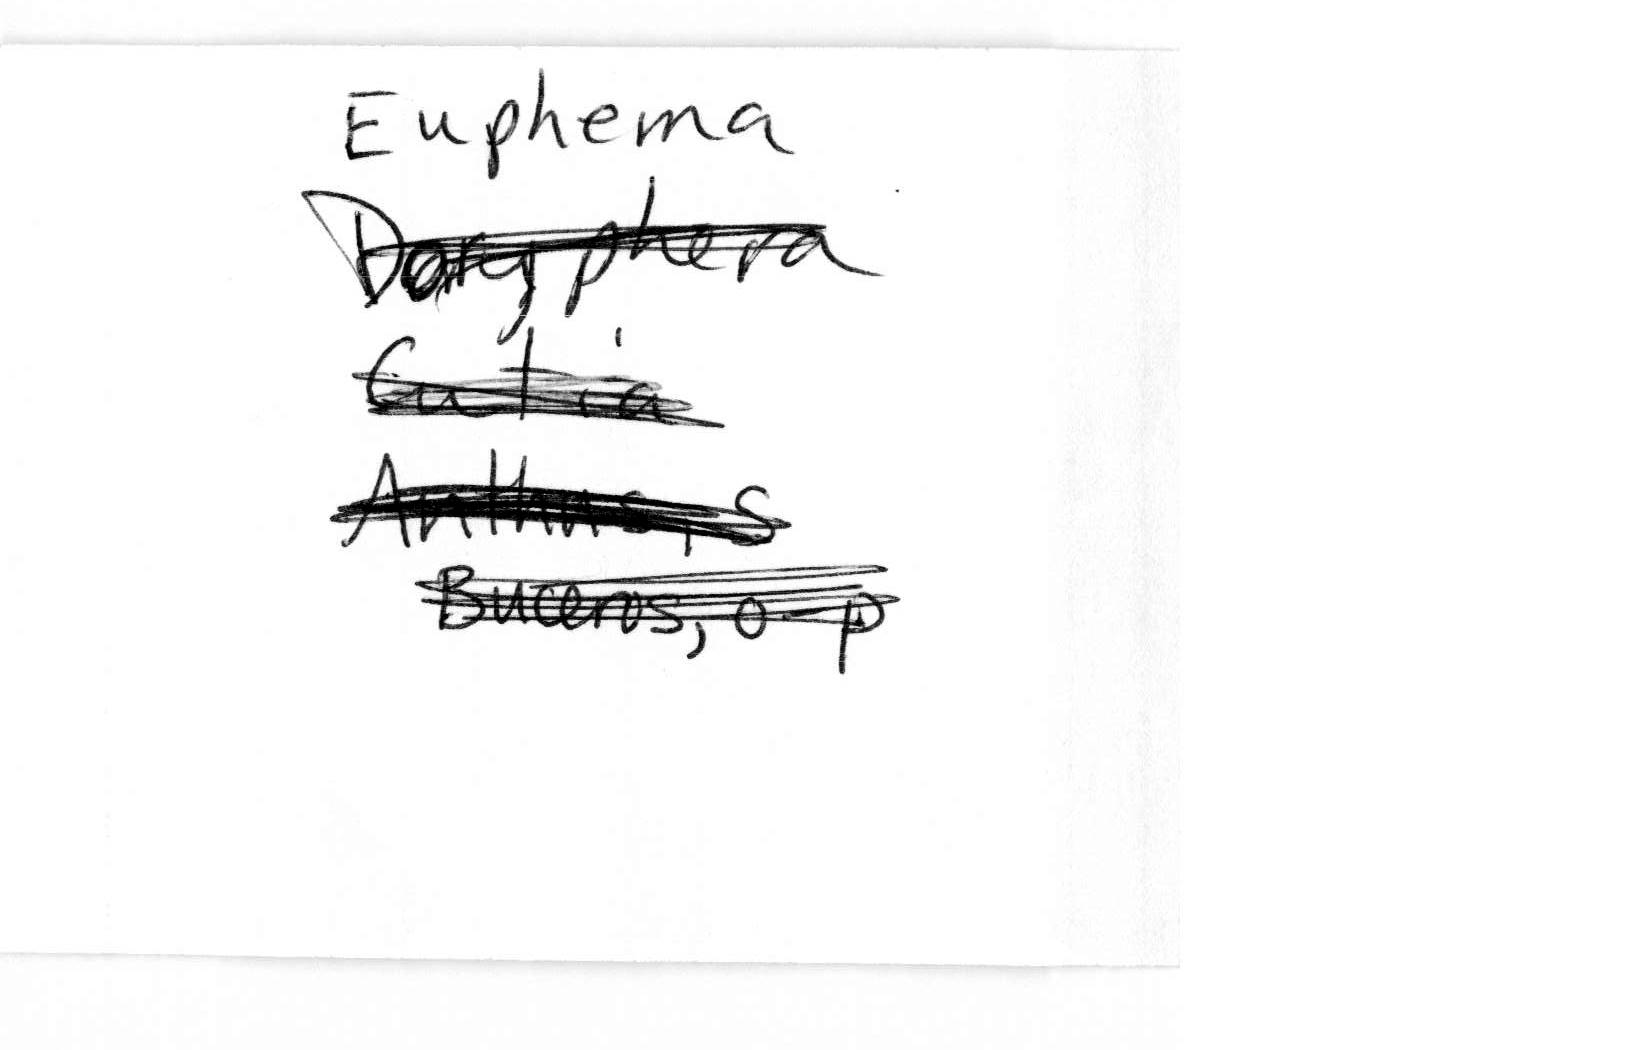 Euphema
Doryphera
Anthus, s
Buceros, o-p